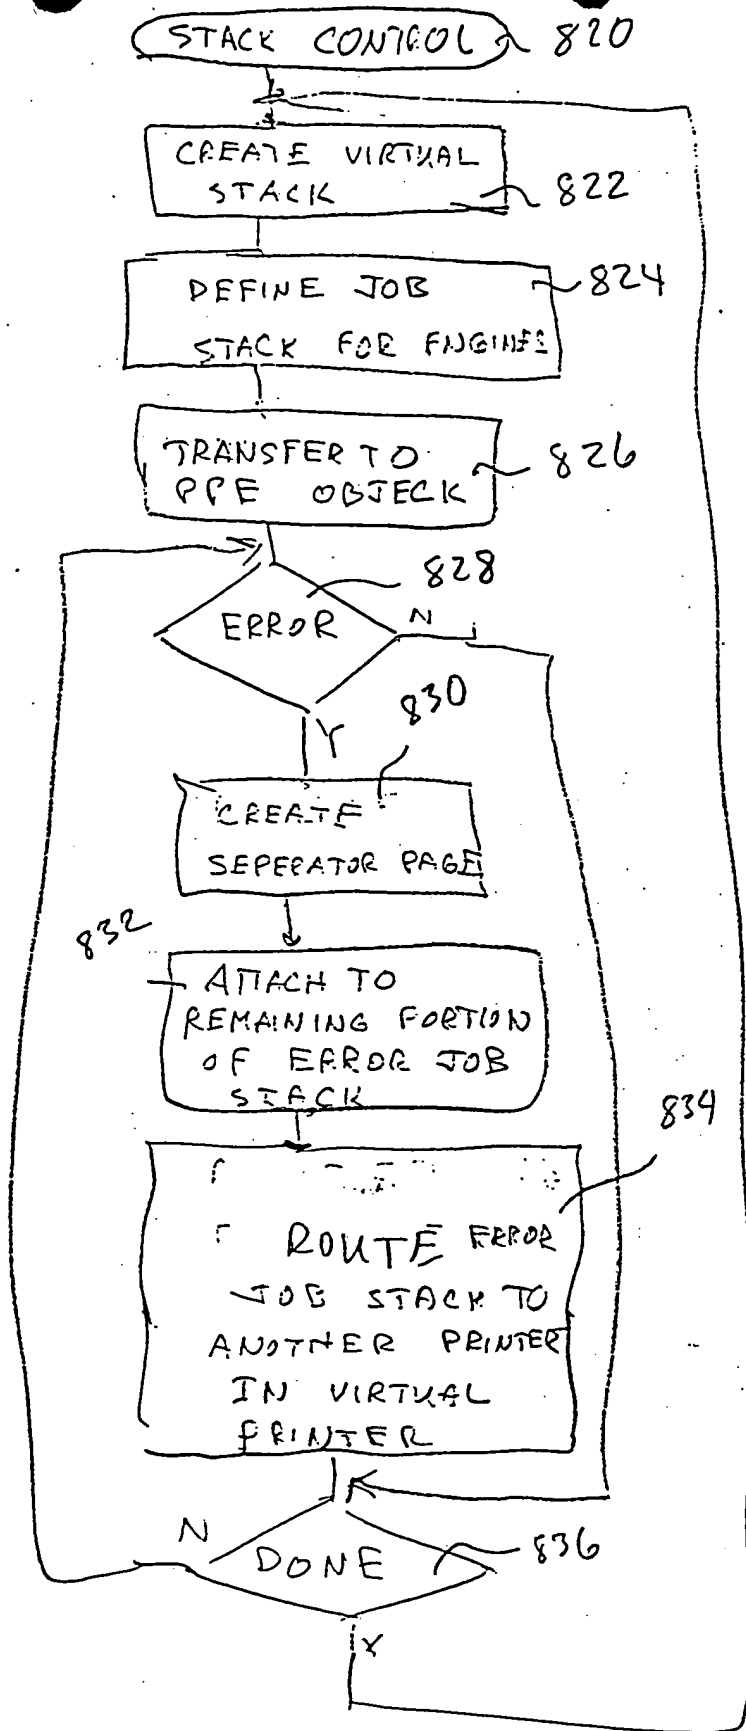 STACK CONTROL 820
CREATE VIRTUAL
STACK 822
DEFINE JOB 824
STACK FOR ENGINES
TRANSFER TO 826
PPE OBJECK
828
ERROR N
830
Y
CREATE
SEPERATOR PAGE
832
ATTACH TO
REMAINING PORTION
OF ERROR JOB
STACK
834
ROUTE ERROR
JOB STACK TO
ANOTHER PRINTER
IN VIRTUAL
PRINTER
N
DONE 836
Y